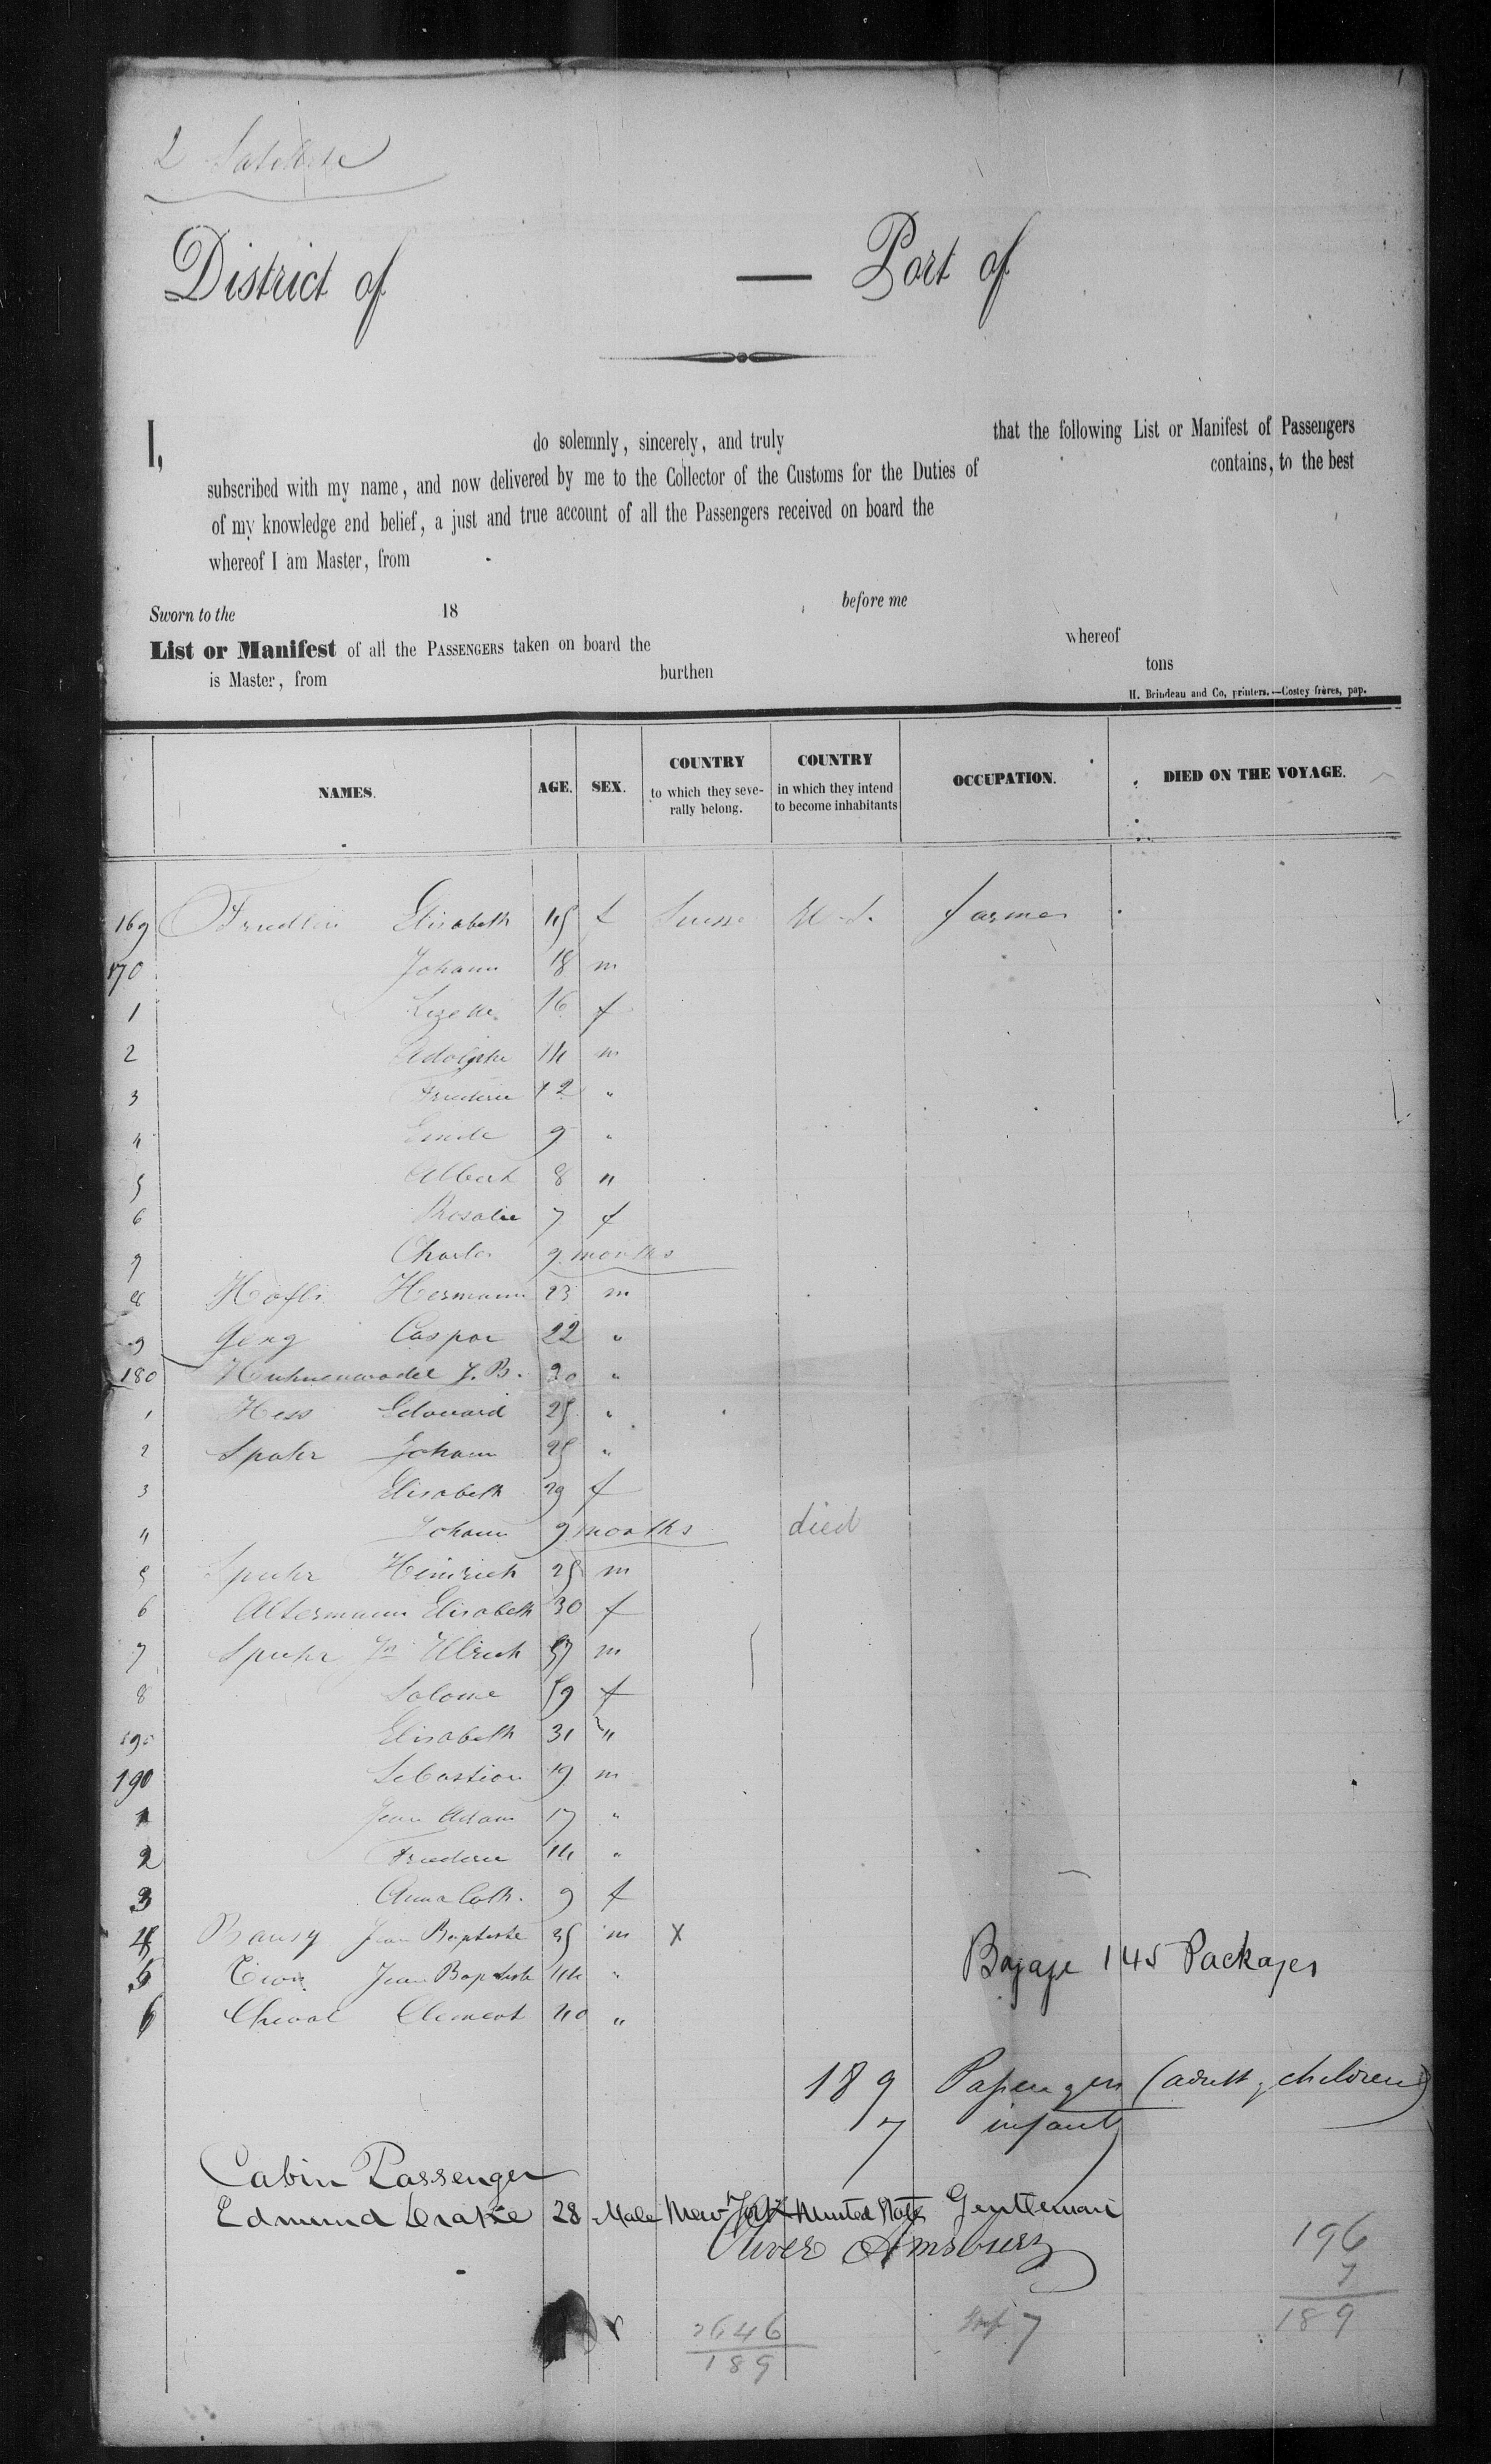 2
District of — Port of
I, do solemnly, sincerely, and truly that the following List or Manifest of Passengers
subscribed with my name, and now delivered by me to the Collector of the Customs for the Duties of contains, to the best
of my knowledge and belief, a just and true account of all the Passengers received on board the
whereof I am Master, from
Sworn to the 18 before me
List or Manifest of all the PASSENGERS taken on board the whereof
is Master, from burthen tons
H. Brindeau and Co, printers.—Costey frères, pap.
NAMES. AGE. SEX. COUNTRY to which they severally belong. COUNTRY in which they intend to become inhabitants OCCUPATION. DIED ON THE VOYAGE.
169 Elisabeth 45 f Suisse U.S. farmer
170 Johann 18 m
1 16 f
2 Adolphe 14 m
3 Frederic 12 "
4 Emile 9 "
5 Albert 8 "
6 Rosalie 7 f
7 Charles 9 months
8 Hermann 23 m
9 Caspar 22 "
180 Huhnenwadel J. B. 20 "
1 Hess Edouard 25 "
2 Spuhr Johann 25 "
3 Elisabeth 29 f
4 Johann 9 months died
5 Spuhr Heinrich 25 m
6 Altermann Elisabeth 30 f
7 Spuhr Jn Ulrich 57 m
8 Salome 59 f
190 Elisabeth 31 "
190 Sebastian 19 m
1 Jean Adam 17 "
2 Frederic 14 "
3 Anna Cath. 9 f
4 Jean Baptiste 35 m X
5 Jean Baptiste 44 " Bagage 145 Packages
6 Cheval Clement 40 "
189 Passengers (adult & children)
7 infants
Cabin Passenger
Edmund Drake 28 Male New York United States Gentleman
Oliver 196
7
Inf 7 189
189